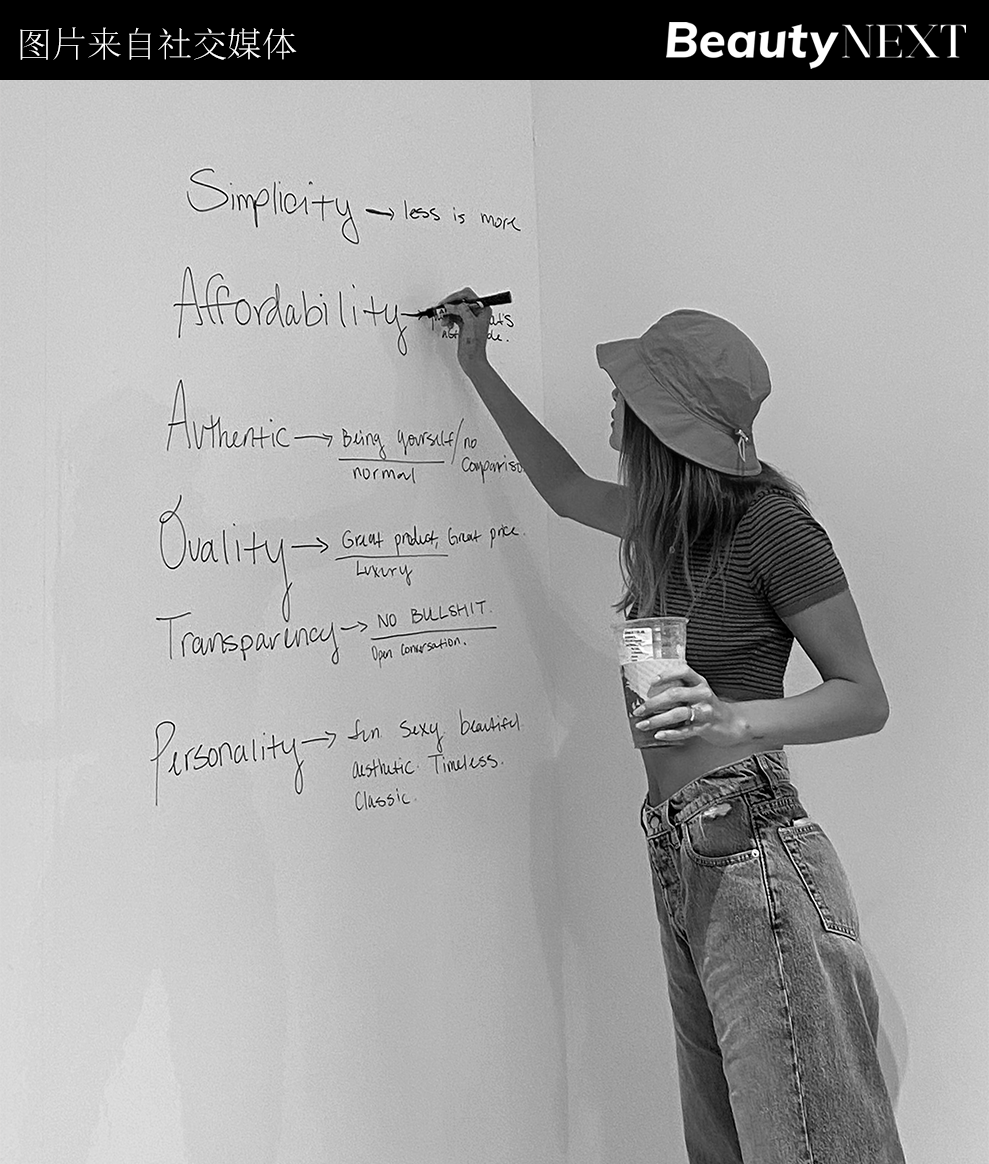 图片来自社交媒体
BeautyNEXT
Simplicity → less is more
Affordability →
Authentic → Being yourself/no
normal
Quality → Great product, Great price.
Luxury
Transparency → NO BULLSHIT.
Open conversation.
Personality → fun. Sexy. beautiful.
aesthetic. Timeless.
Classic.